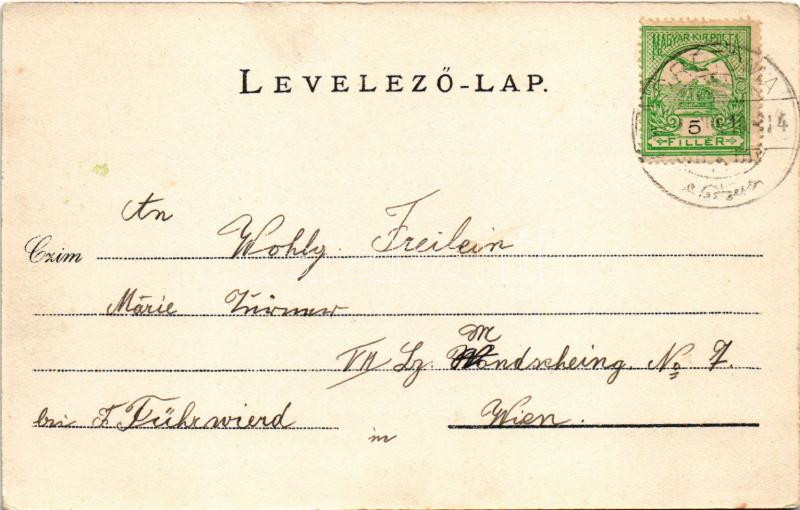 MAGYAR·KIR·POSTA
LEVELEZŐ-LAP.
5
FILLÉR
An
Wohlg. Freilein
Czim
Márie
VII Lz. Mondscheing. No 7.
bei F. Führwierd
in Wien.